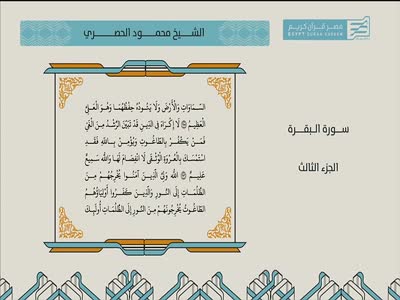 الشيخ محمود الحصري
مصر قرآن كريم
EGYPT QURAN KAREEM
السَّمَاوَاتِ وَالْأَرْضَ وَلَا يَئُودُهُ حِفْظُهُمَا وَهُوَ الْعَلِيُّ
الْعَظِيمُ لَا إِكْرَاهَ فِي الدِّينِ قَد تَّبَيَّنَ الرُّشْدُ مِنَ الْغَيِّ
فَمَنْ يَكْفُرْ بِالطَّاغُوتِ وَيُؤْمِنْ بِاللهِ فَقَدِ
اسْتَمْسَكَ بِالْعُرْوَةِ الْوُثْقَى لَا انْفِصَامَ لَهَا وَاللهُ سَمِيعٌ
عَلِيمٌ اللهُ وَلِيُّ الَّذِينَ آمَنُوا يُخْرِجُهُمْ مِنَ
الظُّلُمَاتِ إِلَى النُّورِ وَالَّذِينَ كَفَرُوا أَوْلِيَاؤُهُمُ
الطَّاغُوتُ يُخْرِجُونَهُمْ مِنَ النُّورِ إِلَى الظُّلُمَاتِ أُولَئِكَ
سورة البقرة
الجزء الثالث